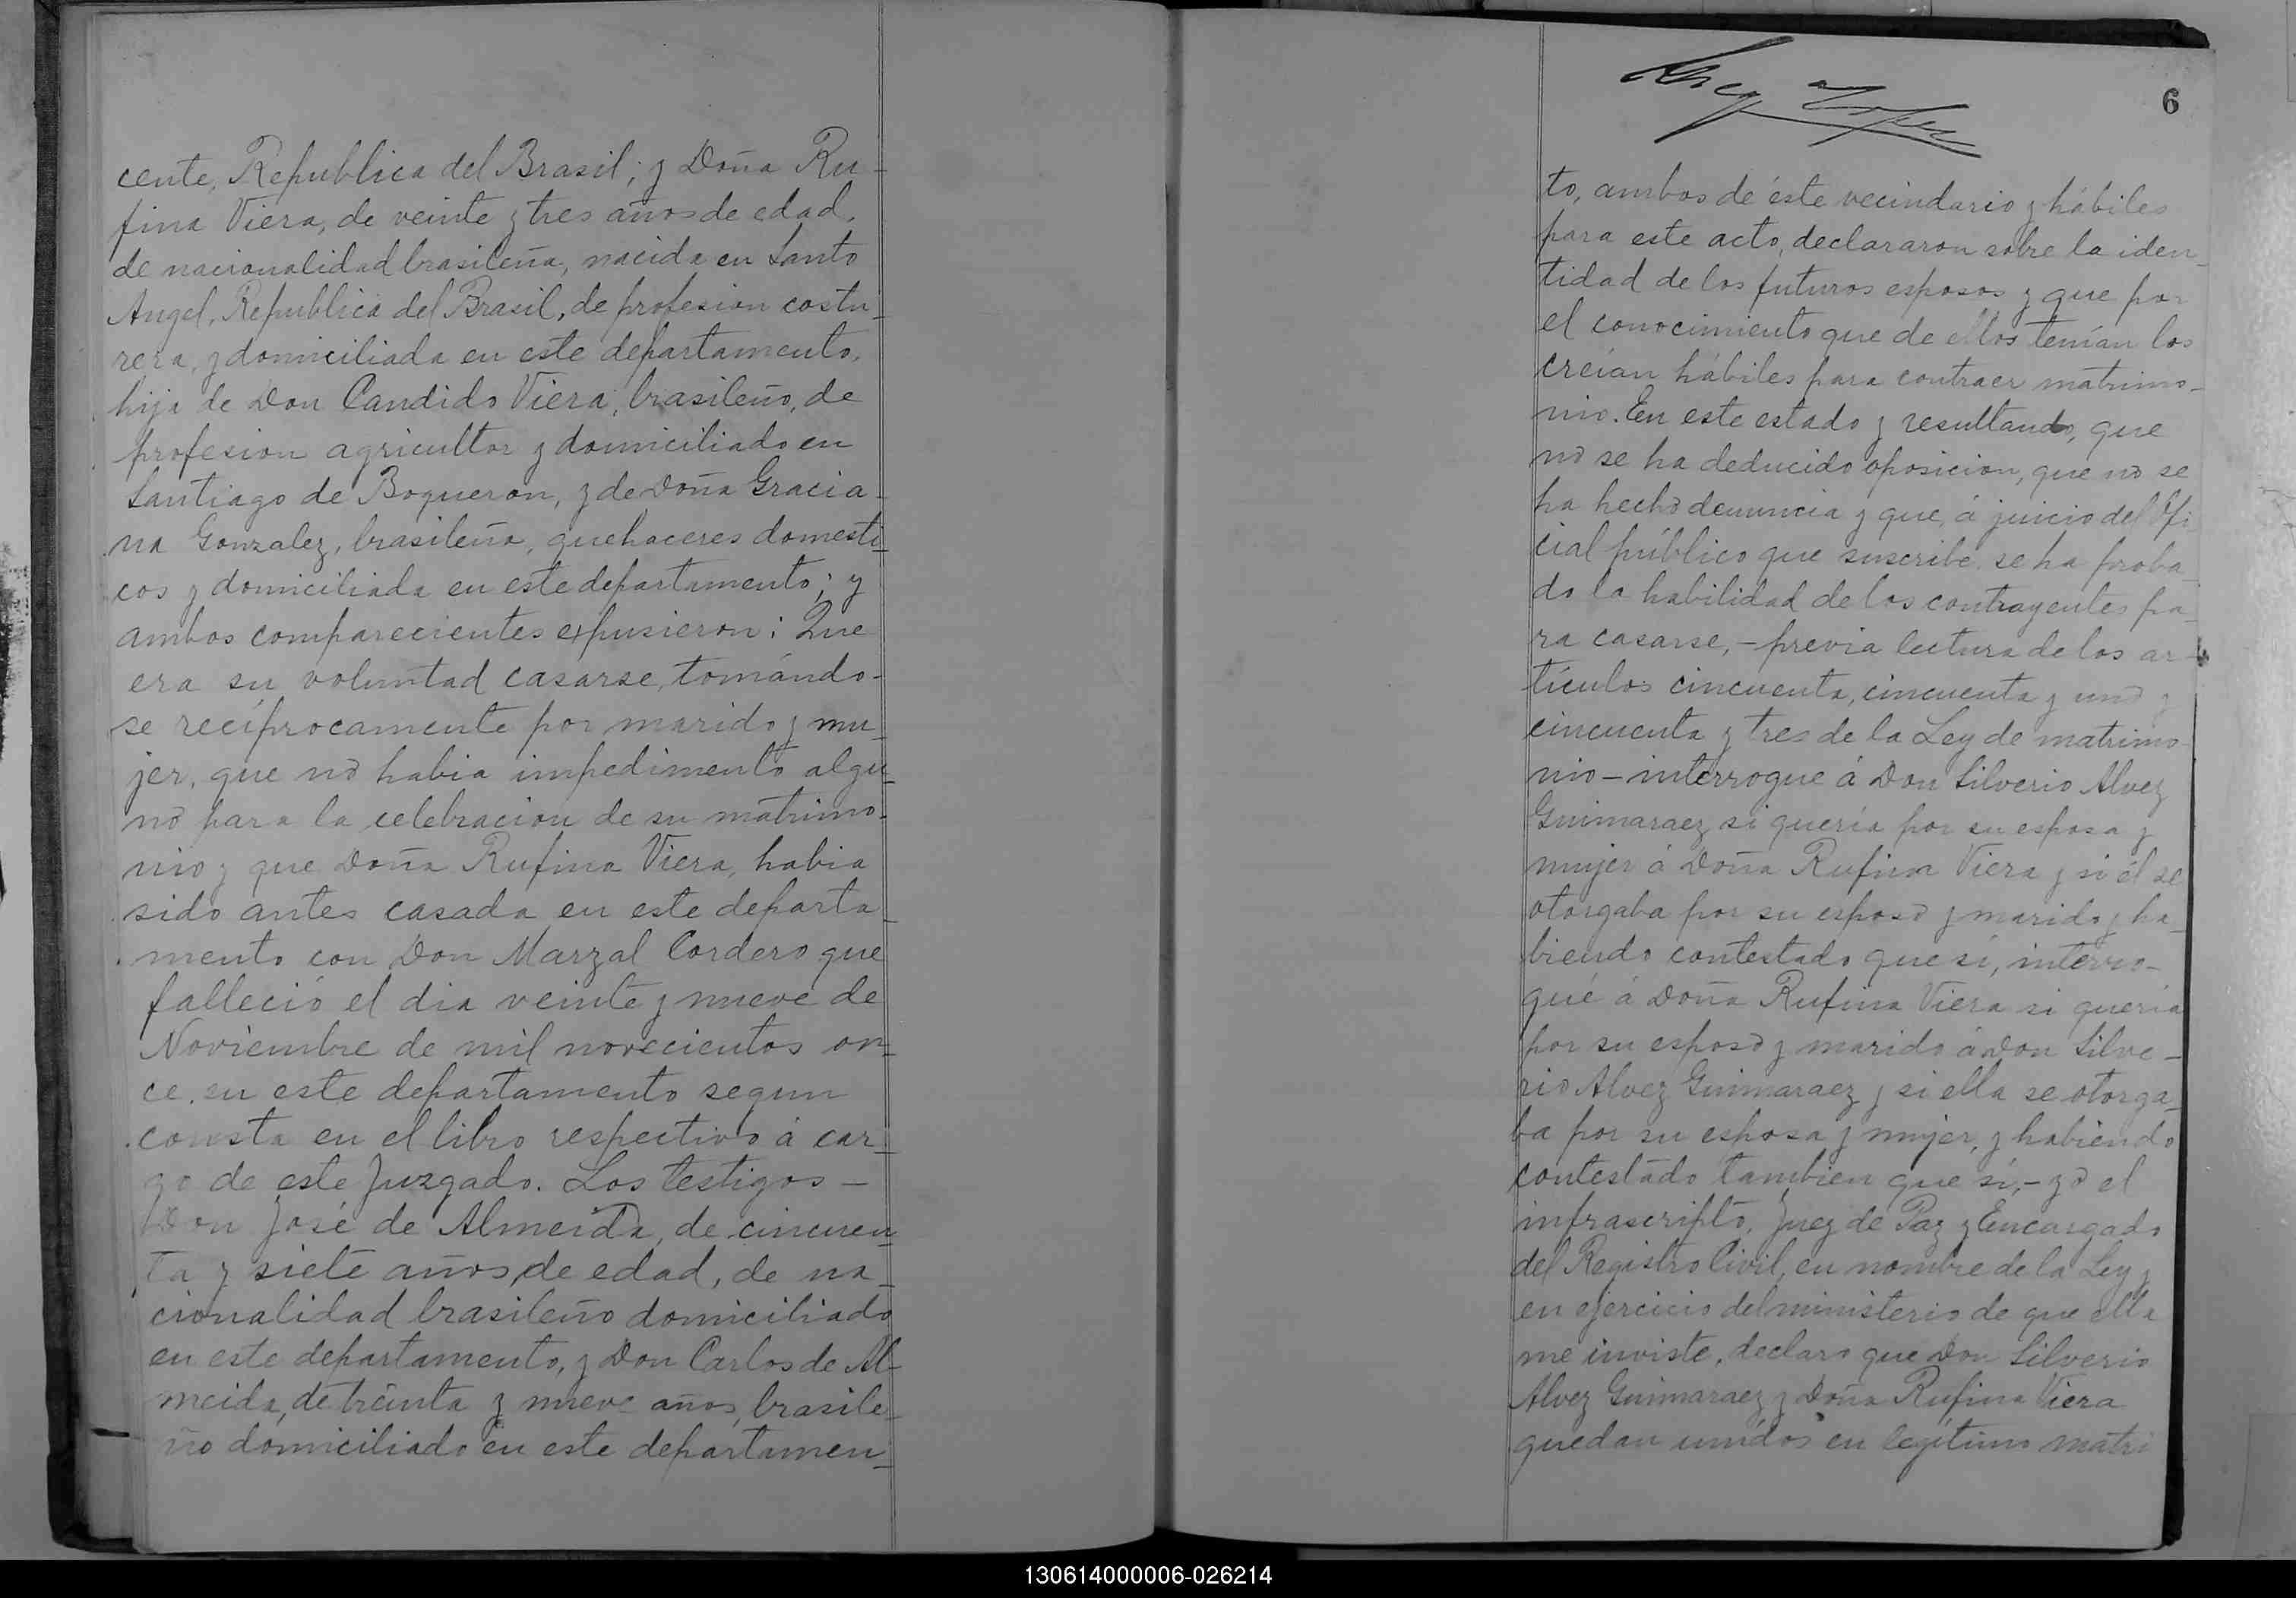 cente, Republica del Brasil; y Doña Ru-
fina Viera, de veinte y tres años de edad,
de nacionalidad brasileña, nacida en Santo
Angel, Republica del Brasil, de profesion costu-
rera, y domiciliada en este departamento,
hija de Don Candido Viera, brasileño, de
profesion agricultor y domiciliado en
Santiago de Boqueron, y de Doña Gracia-
na Gonzalez, brasileña, quehaceres domesti-
cos y domiciliada en este departamento; y
ambos comparecientes expusieron: Que
era su voluntad casarse, tomándo-
se recíprocamente por marido y mu-
jer, que no habia impedimento algu-
no para la celebracion de su matrimo-
nio y que Doña Rufina Viera, habia
sido antes casada en este departa-
mento con Don Marzal Cordero que
falleció el dia veinte y nueve de
Noviembre de mil novecientos on-
ce, en este departamento segun
consta en el libro respectivo á car-
go de este Juzgado. Los testigos —
Don José de Almeida, de cincuen-
ta y siete años, de edad, de na-
cionalidad brasileño domiciliado
en este departamento, y Don Carlos de Al-
meida, de treinta y nueve años, brasile-
ño domiciliado en este departamen-
6
to, ambos de éste vecindario y hábiles
para este acto, declararon sobre la iden-
tidad de los futuros esposos y que por
el conocimiento que de ellos tenían los
creían hábiles para contraer matrimo-
nio. En este estado y resultando, que
no se ha deducido oposicion, que no se
ha hecho denuncia y que, á juicio del Ofi
cial público que suscribe se ha proba-
do la habilidad de los contrayentes pa-
ra casarse, - previa lectura de los ar-
tículos cincuenta, cincuenta y uno y
cincuenta y tres de la Ley de matrimo-
nio - interrogue á Don Silverio Alvez
Guimaraez si quería por su esposa y
mujer á Doña Rufina Viera y si él se
otorgaba por su esposo y marido y ha-
biendo contestado que sí, interro-
gué á Doña Rufina Viera si quería
por su esposo y marido á Don Silve-
rio Alvez Guimaraez y si ella se otorga-
ba por su esposa y mujer, y habiendo
contestado tambien que sí, - yo el
infrascripto, Juez de Paz y Encargado
del Registro Civil, en nombre de la Ley y
en ejercicio del ministerio de que ella
me inviste, declaro que Don Silverio
Alvez Guimaraez y Doña Rufina Viera
quedan unídos en legítimo matri
130614000006-026214